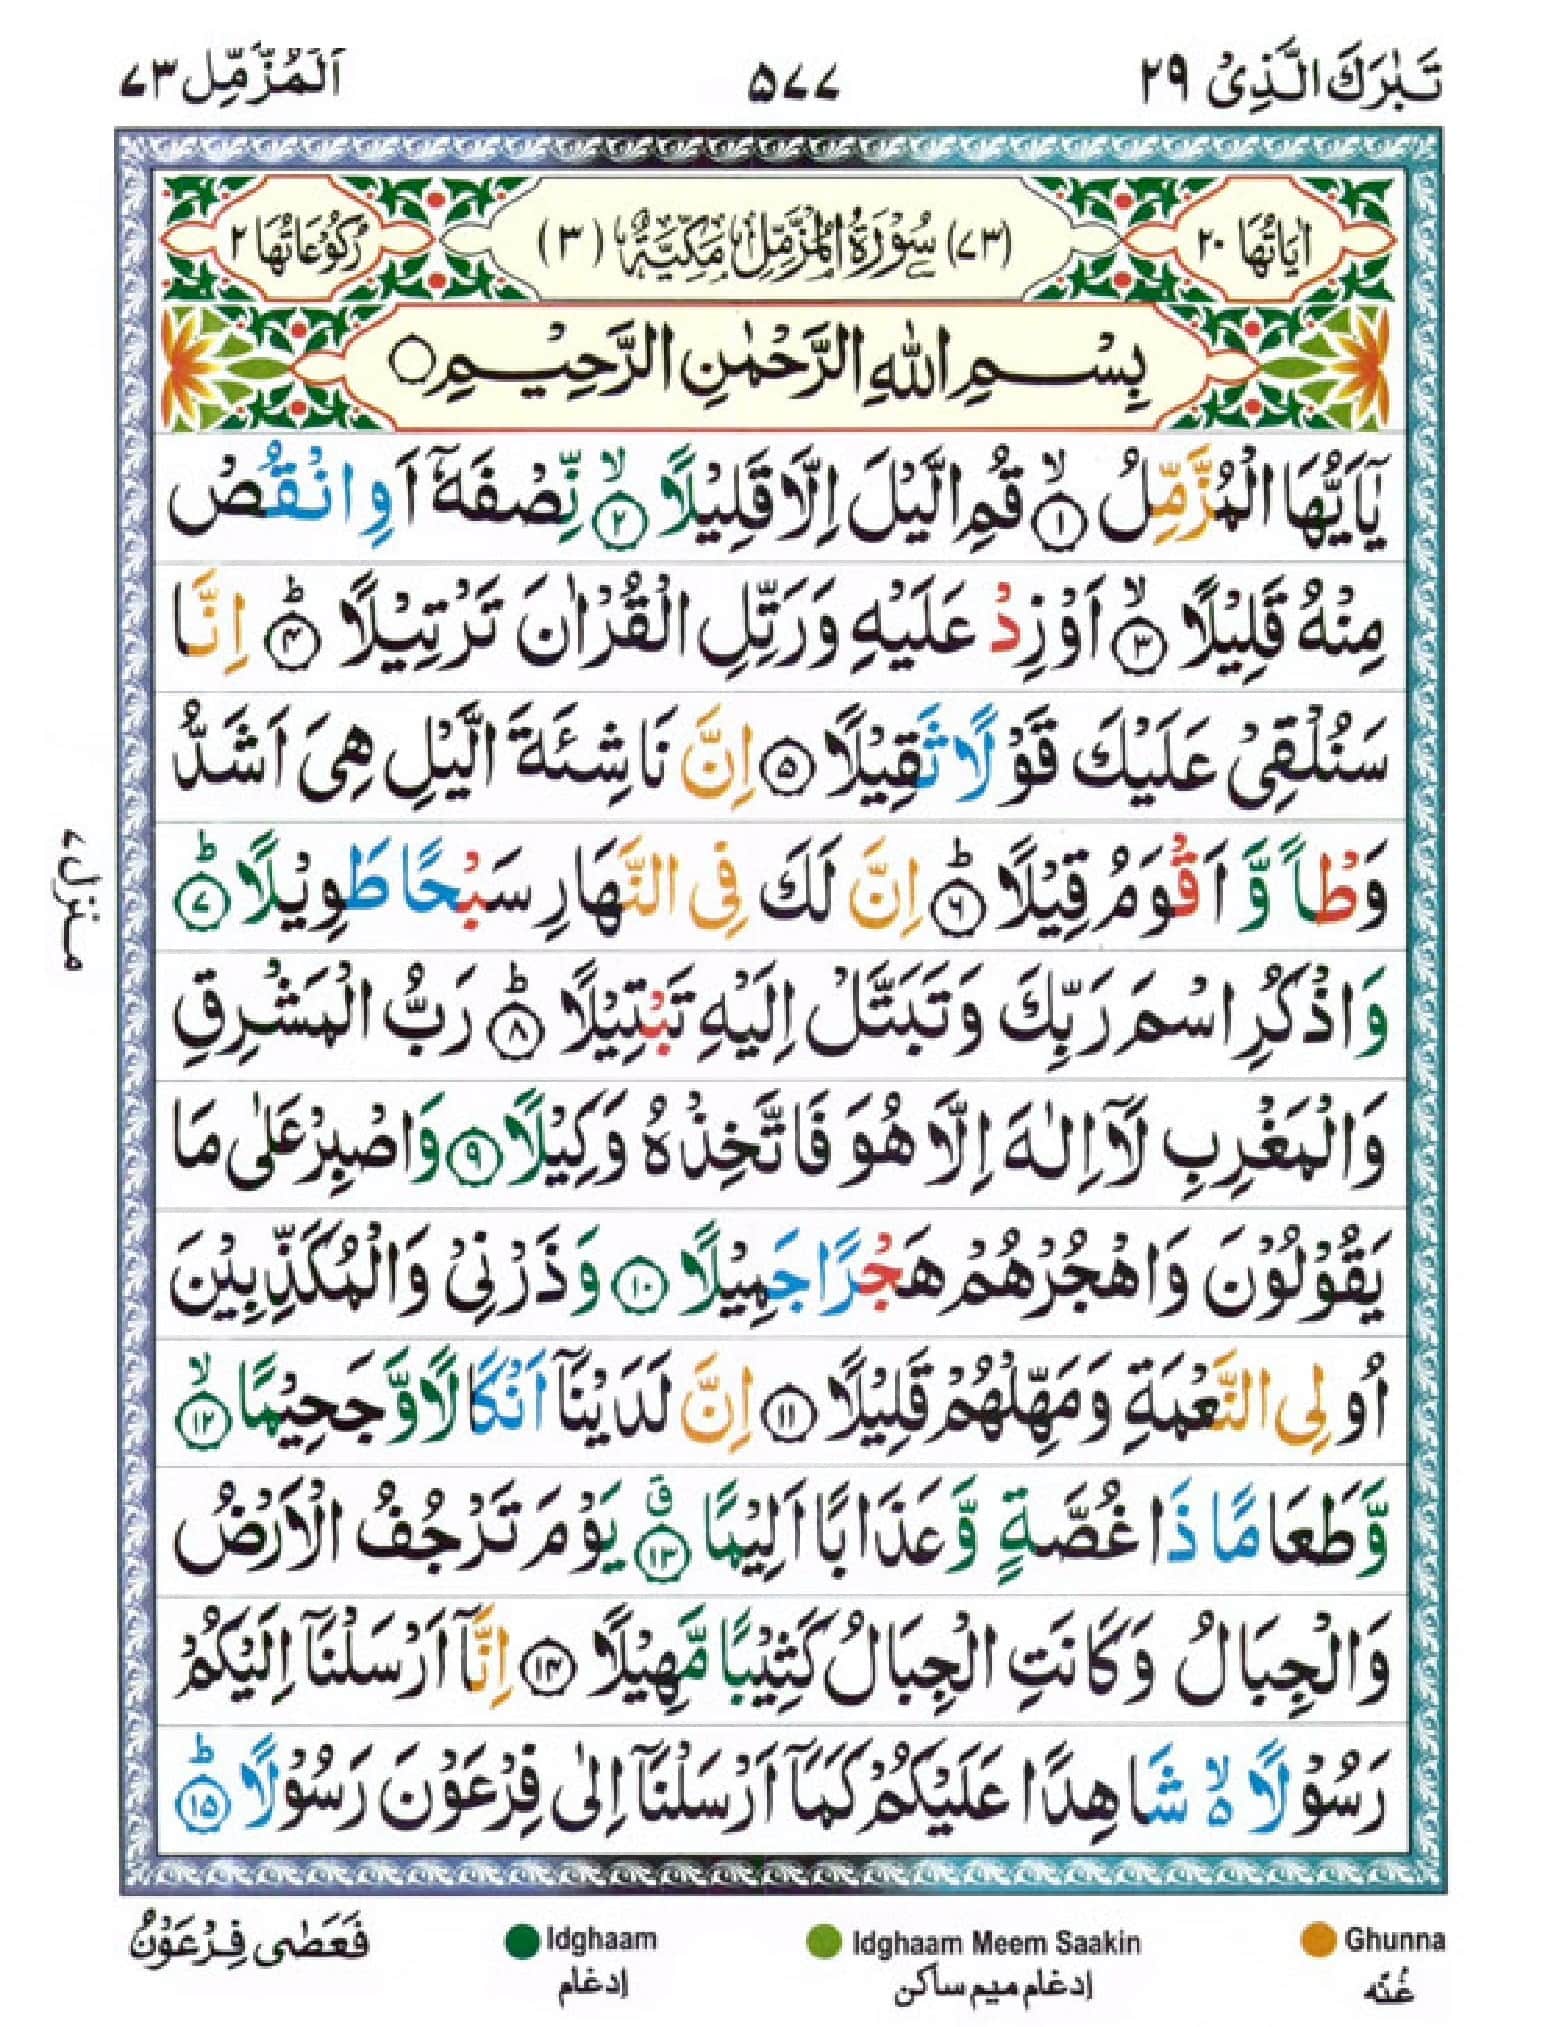 تَبٰرَكَ الَّذِىْ ٢٩ ٥٧٧ اَلْمُزَّمِّل ٧٣
اٰيَاتُهَا ٢٠ (٧٣) سُوْرَةُ الْمُزَّمِّلِ مَكِّيَّةٌ (٣) رُكُوْعَاتُهَا ٢
بِسْمِ اللّٰهِ الرَّحْمٰنِ الرَّحِيْمِ ○
يٰۤاَيُّهَا الْمُزَّمِّلُ ۙ‏﴿١﴾ قُمِ الَّيْلَ اِلَّا قَلِيْلًا ۙ‏﴿٢﴾ نِّصْفَهٗۤ اَوِ انْقُصْ
مِنْهُ قَلِيْلًا ۙ‏﴿٣﴾ اَوْ زِدْ عَلَيْهِ وَرَتِّلِ الْقُرْاٰنَ تَرْتِيْلًا ؕ‏﴿٤﴾ اِنَّا
سَنُلْقِىْ عَلَيْكَ قَوْلًا ثَقِيْلًا ﴿٥﴾ اِنَّ نَاشِئَةَ الَّيْلِ هِىَ اَشَدُّ
وَطْاً وَّ اَقْوَمُ قِيْلًا ؕ‏﴿٦﴾ اِنَّ لَكَ فِى النَّهَارِ سَبْحًا طَوِيْلًا ؕ‏﴿٧﴾
وَاذْكُرِ اسْمَ رَبِّكَ وَتَبَتَّلْ اِلَيْهِ تَبْتِيْلًا ؕ‏﴿٨﴾ رَبُّ الْمَشْرِقِ
وَالْمَغْرِبِ لَاۤ اِلٰهَ اِلَّا هُوَ فَاتَّخِذْهُ وَكِيْلًا ﴿٩﴾ وَاصْبِرْ عَلٰى مَا
يَقُوْلُوْنَ وَاهْجُرْهُمْ هَجْرًا جَمِيْلًا ﴿١٠﴾ وَذَرْنِىْ وَالْمُكَذِّبِيْنَ
اُولِى النَّعْمَةِ وَمَهِّلْهُمْ قَلِيْلًا ﴿١١﴾ اِنَّ لَدَيْنَاۤ اَنْكَالًا وَّجَحِيْمًا ۙ‏﴿١٢﴾
وَّطَعَامًا ذَا غُصَّةٍ وَّعَذَابًا اَلِيْمًا ۗ‏﴿١٣﴾ يَوْمَ تَرْجُفُ الْاَرْضُ
وَالْجِبَالُ وَكَانَتِ الْجِبَالُ كَثِيْبًا مَّهِيْلًا ﴿١٤﴾ اِنَّاۤ اَرْسَلْنَاۤ اِلَيْكُمْ
رَسُوْلًا ۙ۬ شَاهِدًا عَلَيْكُمْ كَمَاۤ اَرْسَلْنَاۤ اِلٰى فِرْعَوْنَ رَسُوْلًا ؕ‏﴿١٥﴾
منزل ٧
Ghunna Idghaam Meem Saakin Idghaam فَعَصٰى فِرْعَوْنُ
غُنّه إدغام ميم ساكن إدغام